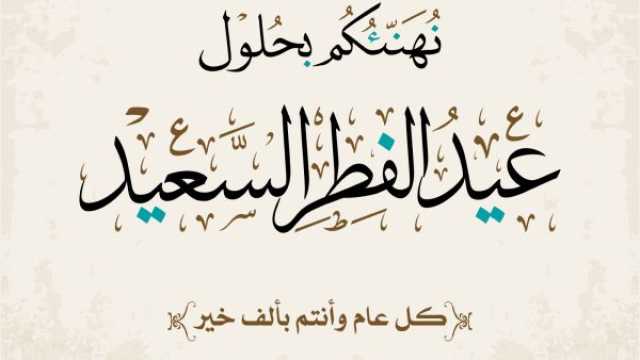 نُهَنِّئُكُم بِحُلُول
عِيدُ الفِطرِ السَّعِيد
كل عام وأنتم بألف خير